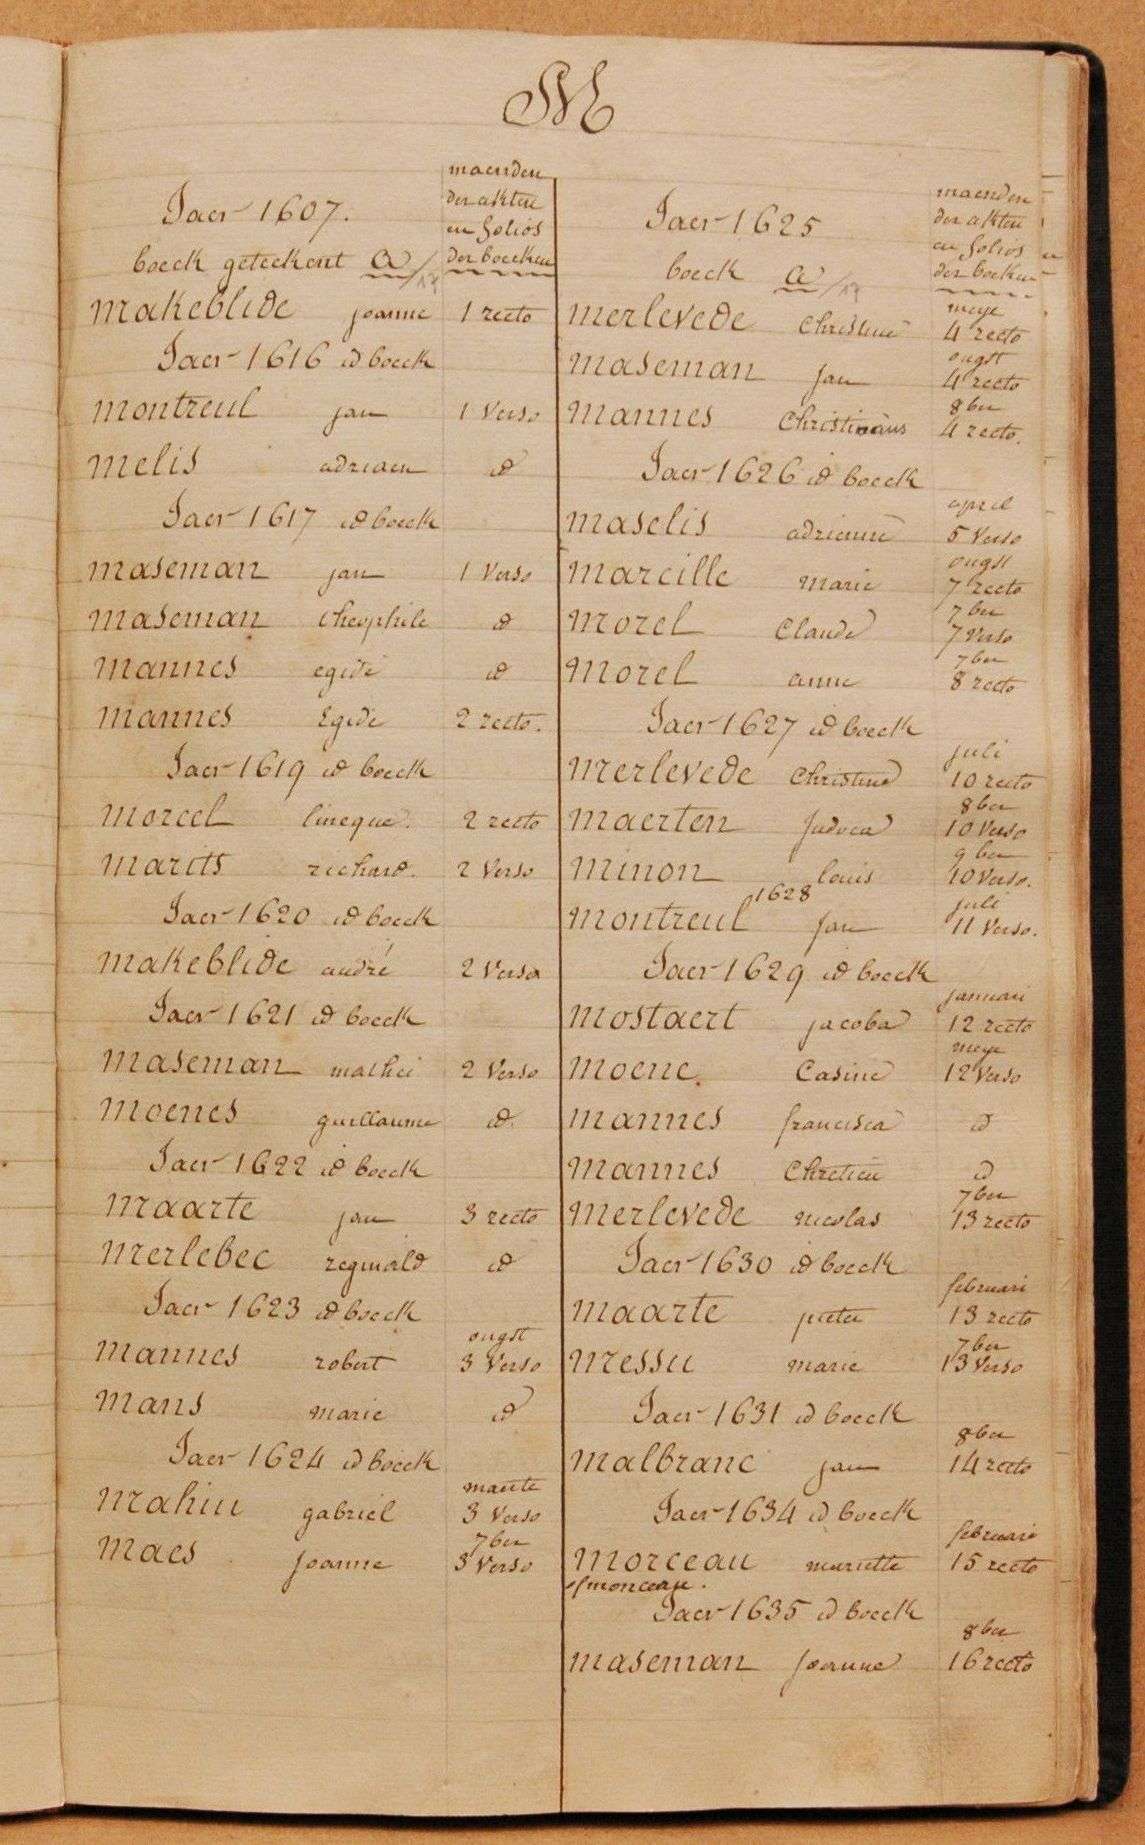 M
maenden
Jaer 1607. der akten
en folios
boeck geteekent a/ der boecken
makeblide joanne 1 recto
Jaer 1616 id boeck
montreul jan 1 Verso
melis adriaen id
Jaer 1617 id boeck
maseman jan 1 Verso
maseman theophile id
mannes egidi id
mannes Egidi 2 recto.
Jaer 1619 id boeck
morcel lineque. 2 recto
marits richard. 2 Verso
Jaer 1620 id boeck
makeblide andré 2 Verso
Jaer 1621 id boeck
maseman mathei 2 Verso
moenes guillaume id.
Jaer 1622 id boeck
maarte jan 3 recto
merlebec reginald id
Jaer 1623 id boeck
ougst
mannes robert 3 Verso
mans marie id
Jaer 1624 id boeck
maerte
mahiu gabriel 3 Verso
7ber
maes Joanne 3 Verso
maenden
Jaer 1625 der akten
en folios
boeck a/ der boeken
meye
merlevede Christine 4 recto
ougst
maseman Jan 4 recto
8ber
mannes Christinaûs 4 recto.
Jaer 1626 id boeck
april
maselis adrienne 5 Verso
ougst
mareille marie 7 recto
7ber
morel Claude 7 Verso
7ber
morel anne 8 recto
Jaer 1627 id boeck
juli
merlevede Christine 10 recto
8ber
maerten Judoca 10 Verso
9ber
minon louis 10 Verso.
1628 juli
montreul Jan 11 Verso.
Jaer 1629 id boeck
januari
mostaert jacoba 12 recto
meye
moene. Casine 12 Verso
mannes francisca id
mannes Chretien id
7ber
merlevede nicolas 13 recto
Jaer 1630 id boeck
februari
maarte pieter 13 recto
7ber
messu marie 13 Verso
Jaer 1631 id boeck
8ber
malbranc jan 14 recto
Jaer 1634 id boeck
februari
morceau mariette 15 recto
of monceau.
Jaer 1635 id boeck
8ber
maseman Joanne 16 recto